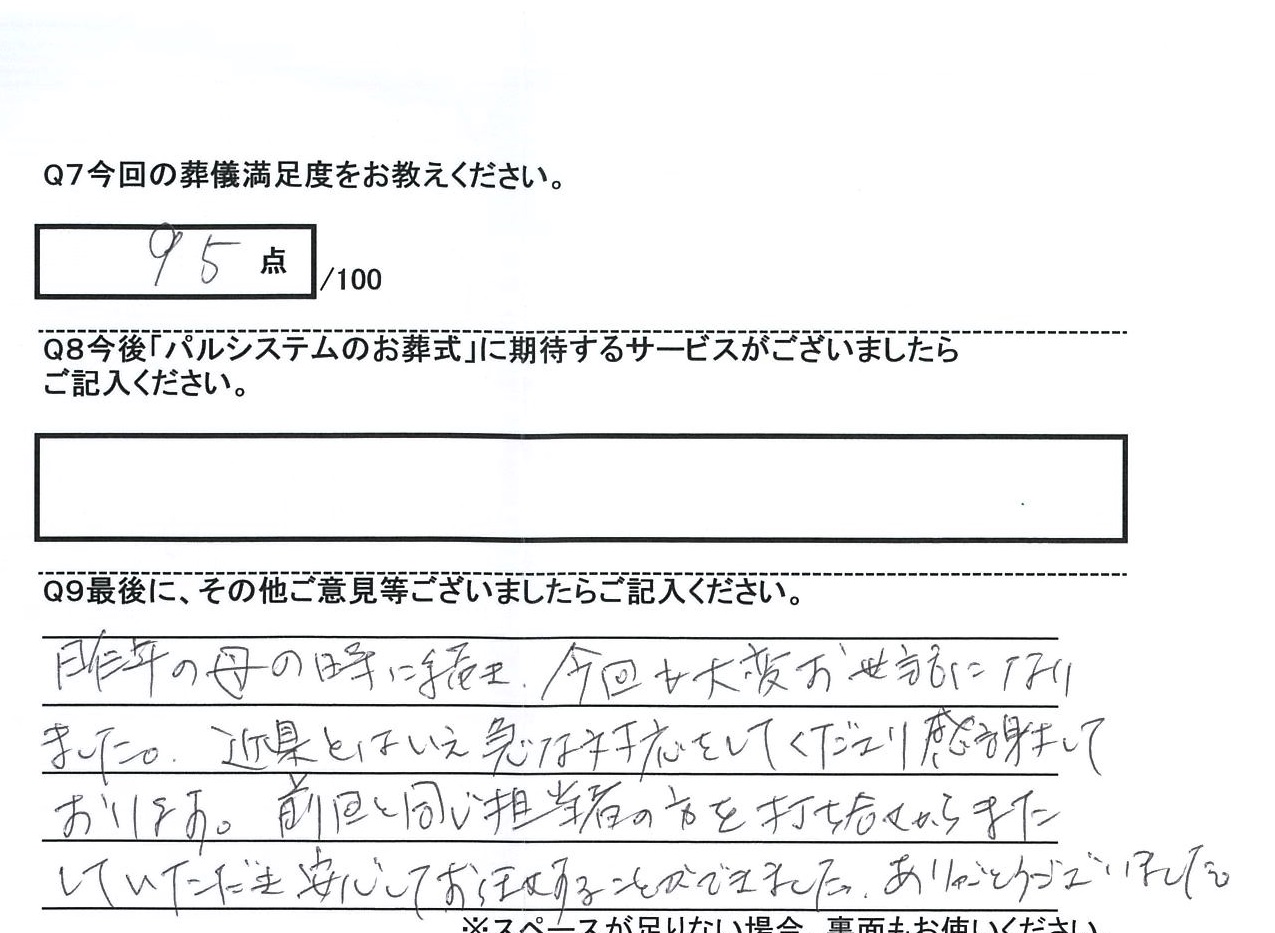 Q7今回の葬儀満足度をお教えください。
95点/100
Q8今後「パルシステムのお葬式」に期待するサービスがございましたら
ご記入ください。
Q9最後に、その他ご意見等ございましたらご記入ください。
昨年の母の時に続き、今回も大変お世話になり
ました。近県とはいえ急な対応をしてくださり感謝して
おります。前回と同じ担当者の方を打ち合せから
していただき安心してお任せすることができました。ありがとうございました。
※スペースが足りない場合、裏面もお使いください